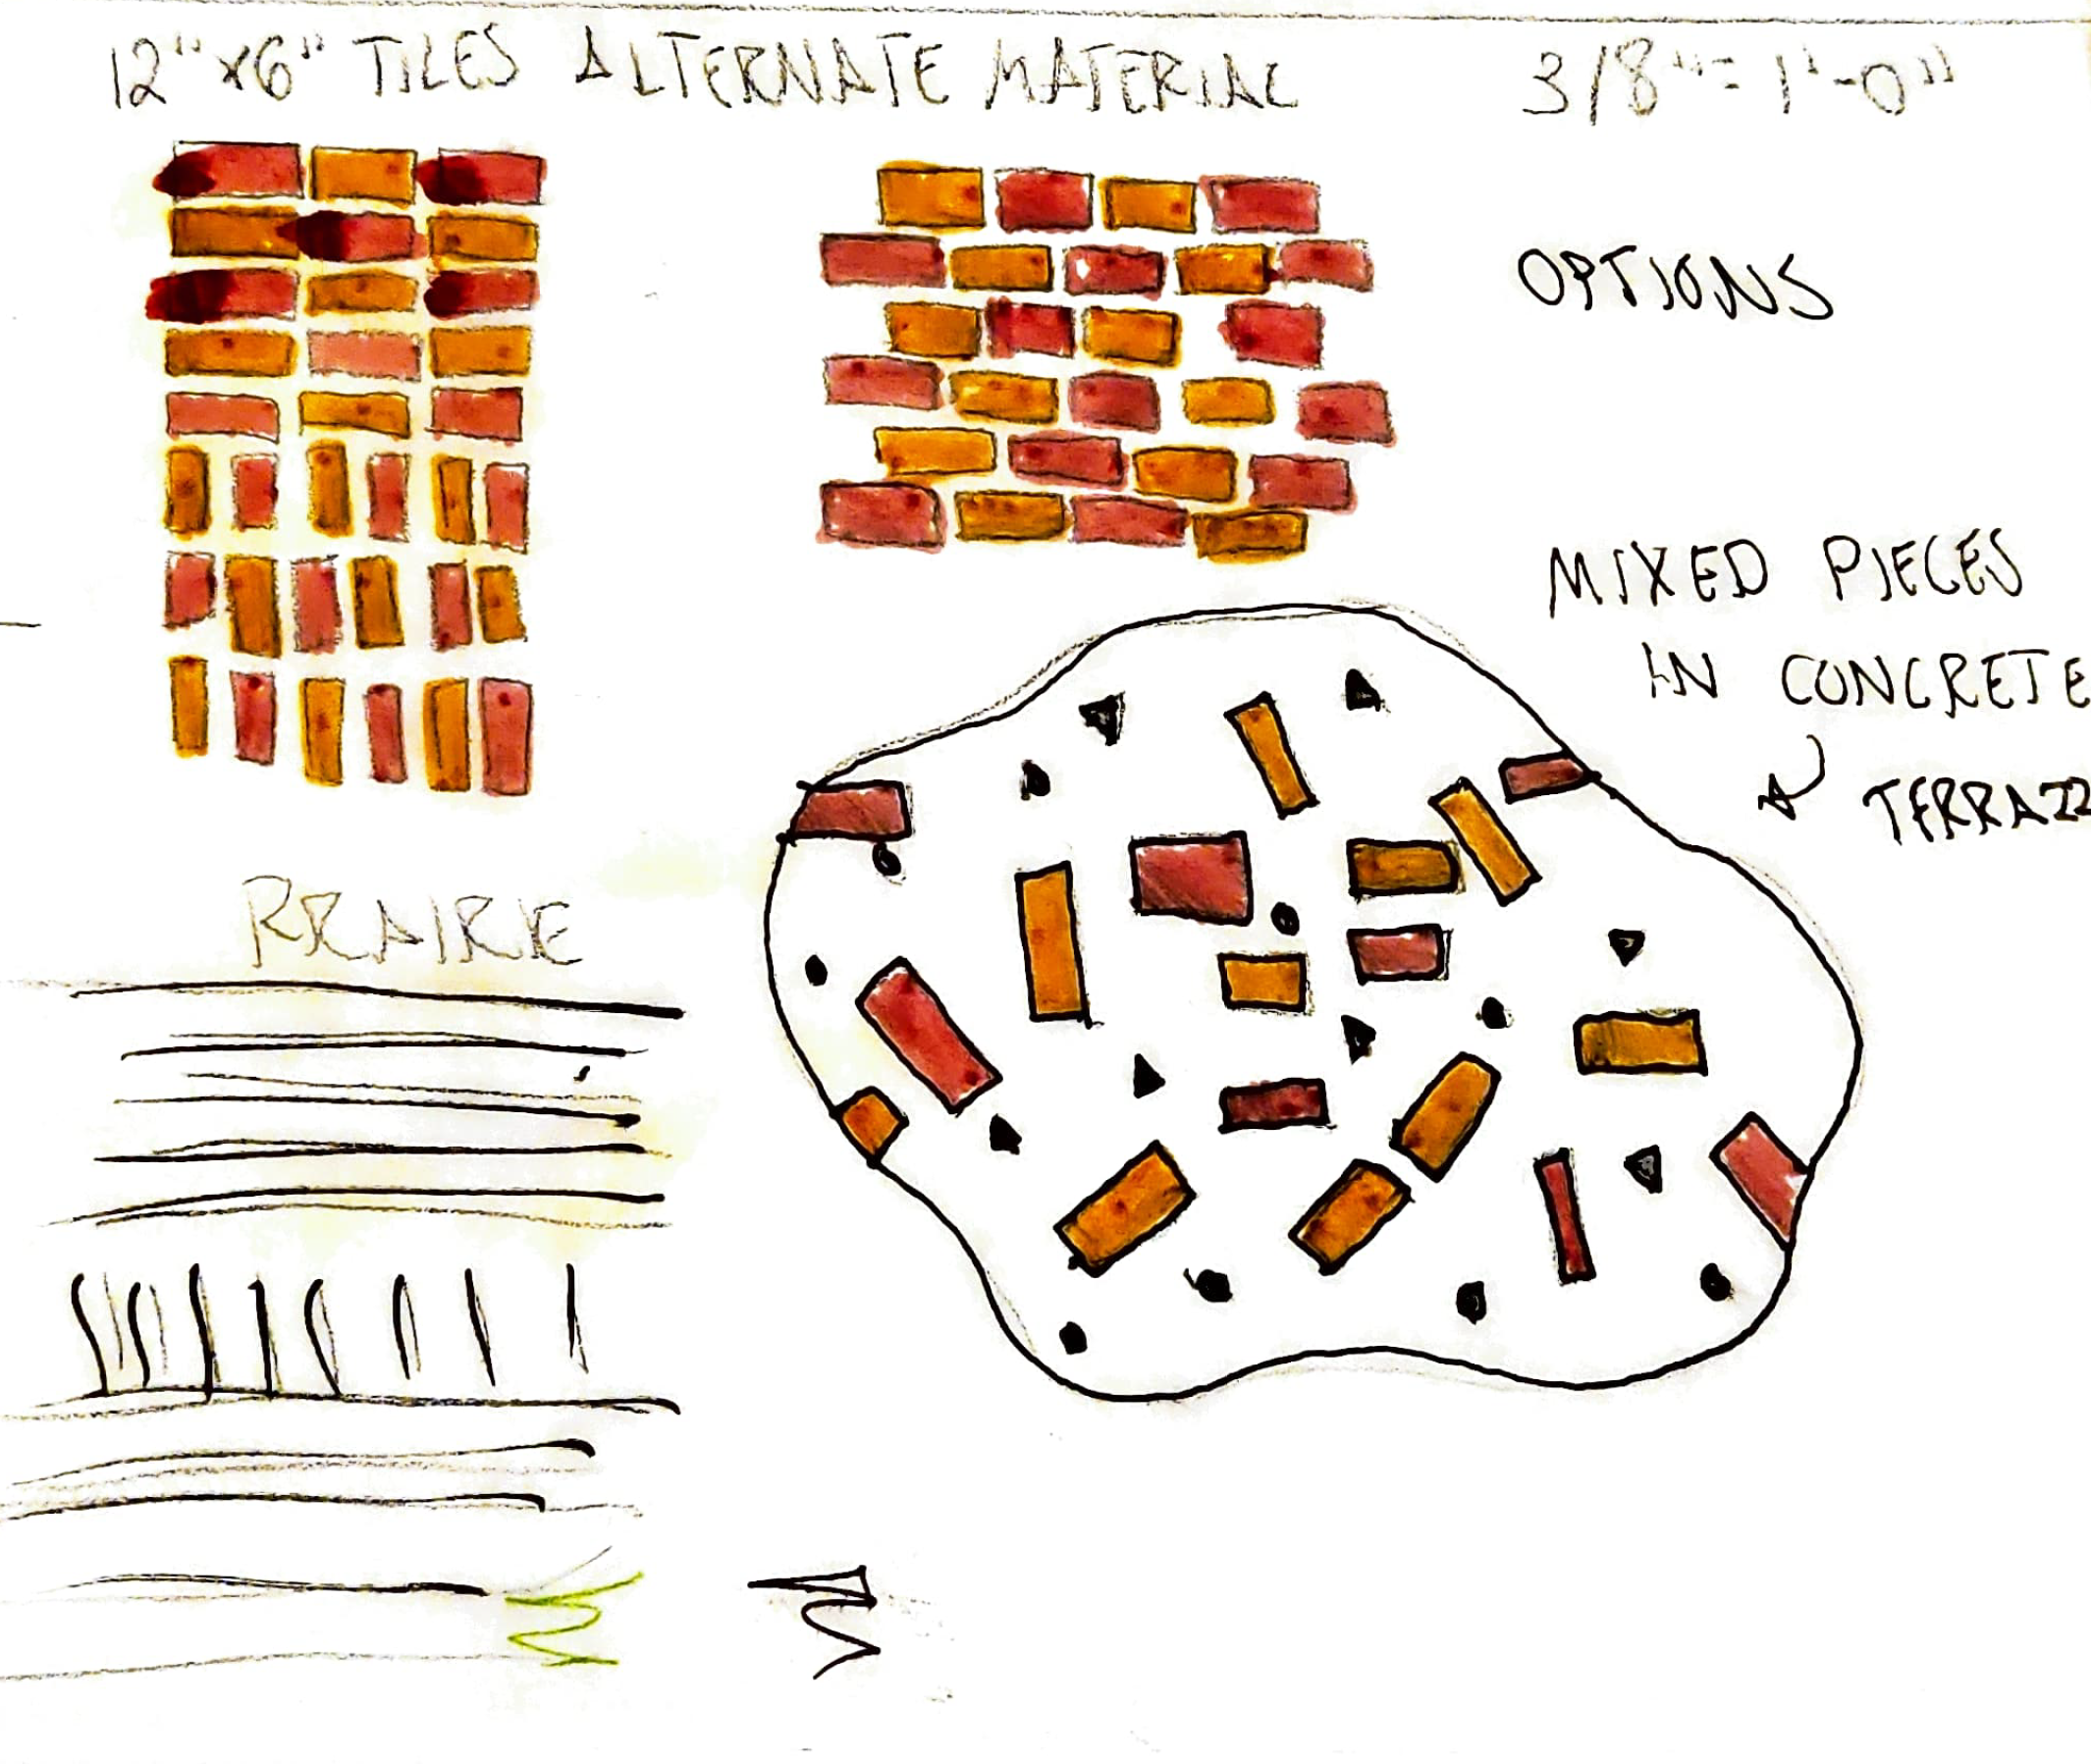 12"x6" TILES ALTERNATE MATERIAL
3/8"=1'-0"
OPTIONS
MIXED PIECES
IN CONCRETE
TERRAZZ
PRAIRIE